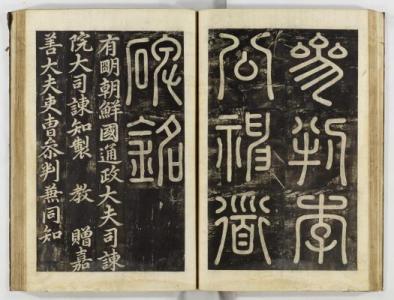 參判李
公神道
碑銘
有明朝鮮國通政大夫司諫
院大司諫知製 教 贈嘉
善大夫吏曹叅判兼同知